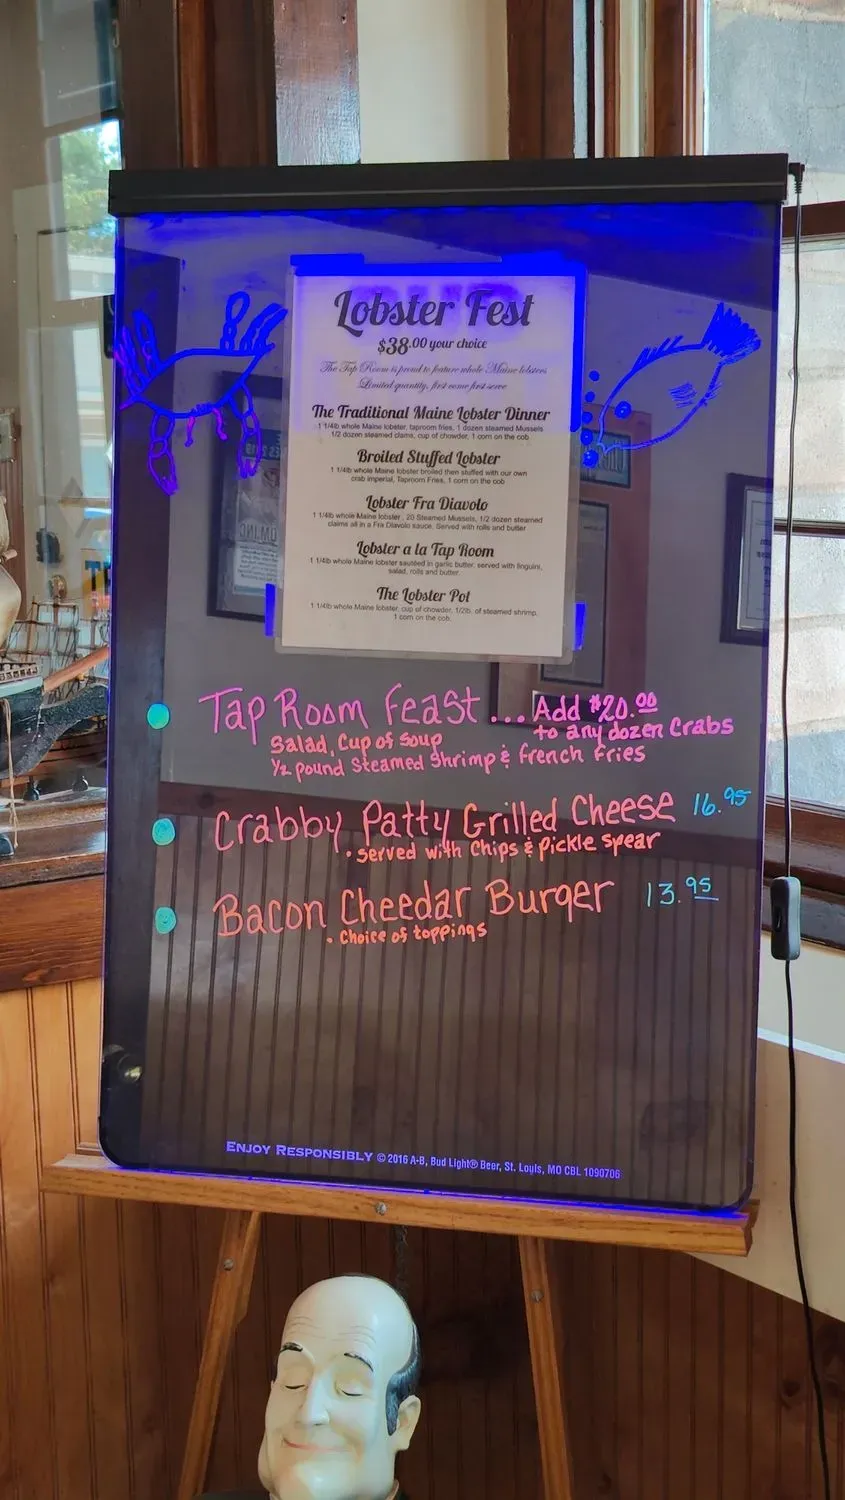 Lobster Fest
$38.00 your choice
The Tap Room is proud to feature whole Maine lobsters
Limited quantity, first come first serve
The Traditional Maine Lobster Dinner
1 1/4lb whole Maine lobster, taproom fries, 1 dozen steamed Mussels
1/2 dozen steamed clams, cup of chowder, 1 corn on the cob
Broiled Stuffed Lobster
1 1/4lb whole Maine lobster broiled then stuffed with our own
crab imperial, Taproom Fries, 1 corn on the cob
Lobster Fra Diavolo
1 1/4lb whole Maine lobster, 20 Steamed Mussels, 1/2 dozen steamed
claims all in a Fra Diavolo sauce. Served with rolls and butter
Lobster a la Tap Room
1 1/4lb whole Maine lobster sautéed in garlic butter, served with linguini,
salad, rolls and butter
The Lobster Pot
1 1/4lb whole Maine lobster, cup of chowder, 1/2lb. of steamed shrimp,
1 corn on the cob.
Tap Room Feast... Add $20.00
to any dozen Crabs
Salad, Cup of Soup
1/2 pound Steamed Shrimp & French Fries
Crabby Patty Grilled Cheese 16.95
• Served with Chips & Pickle Spear
Bacon Cheedar Burger 13.95
• Choice of toppings
Enjoy Responsibly © 2016 A-B, Bud Light® Beer, St. Louis, MO CBL 1090706